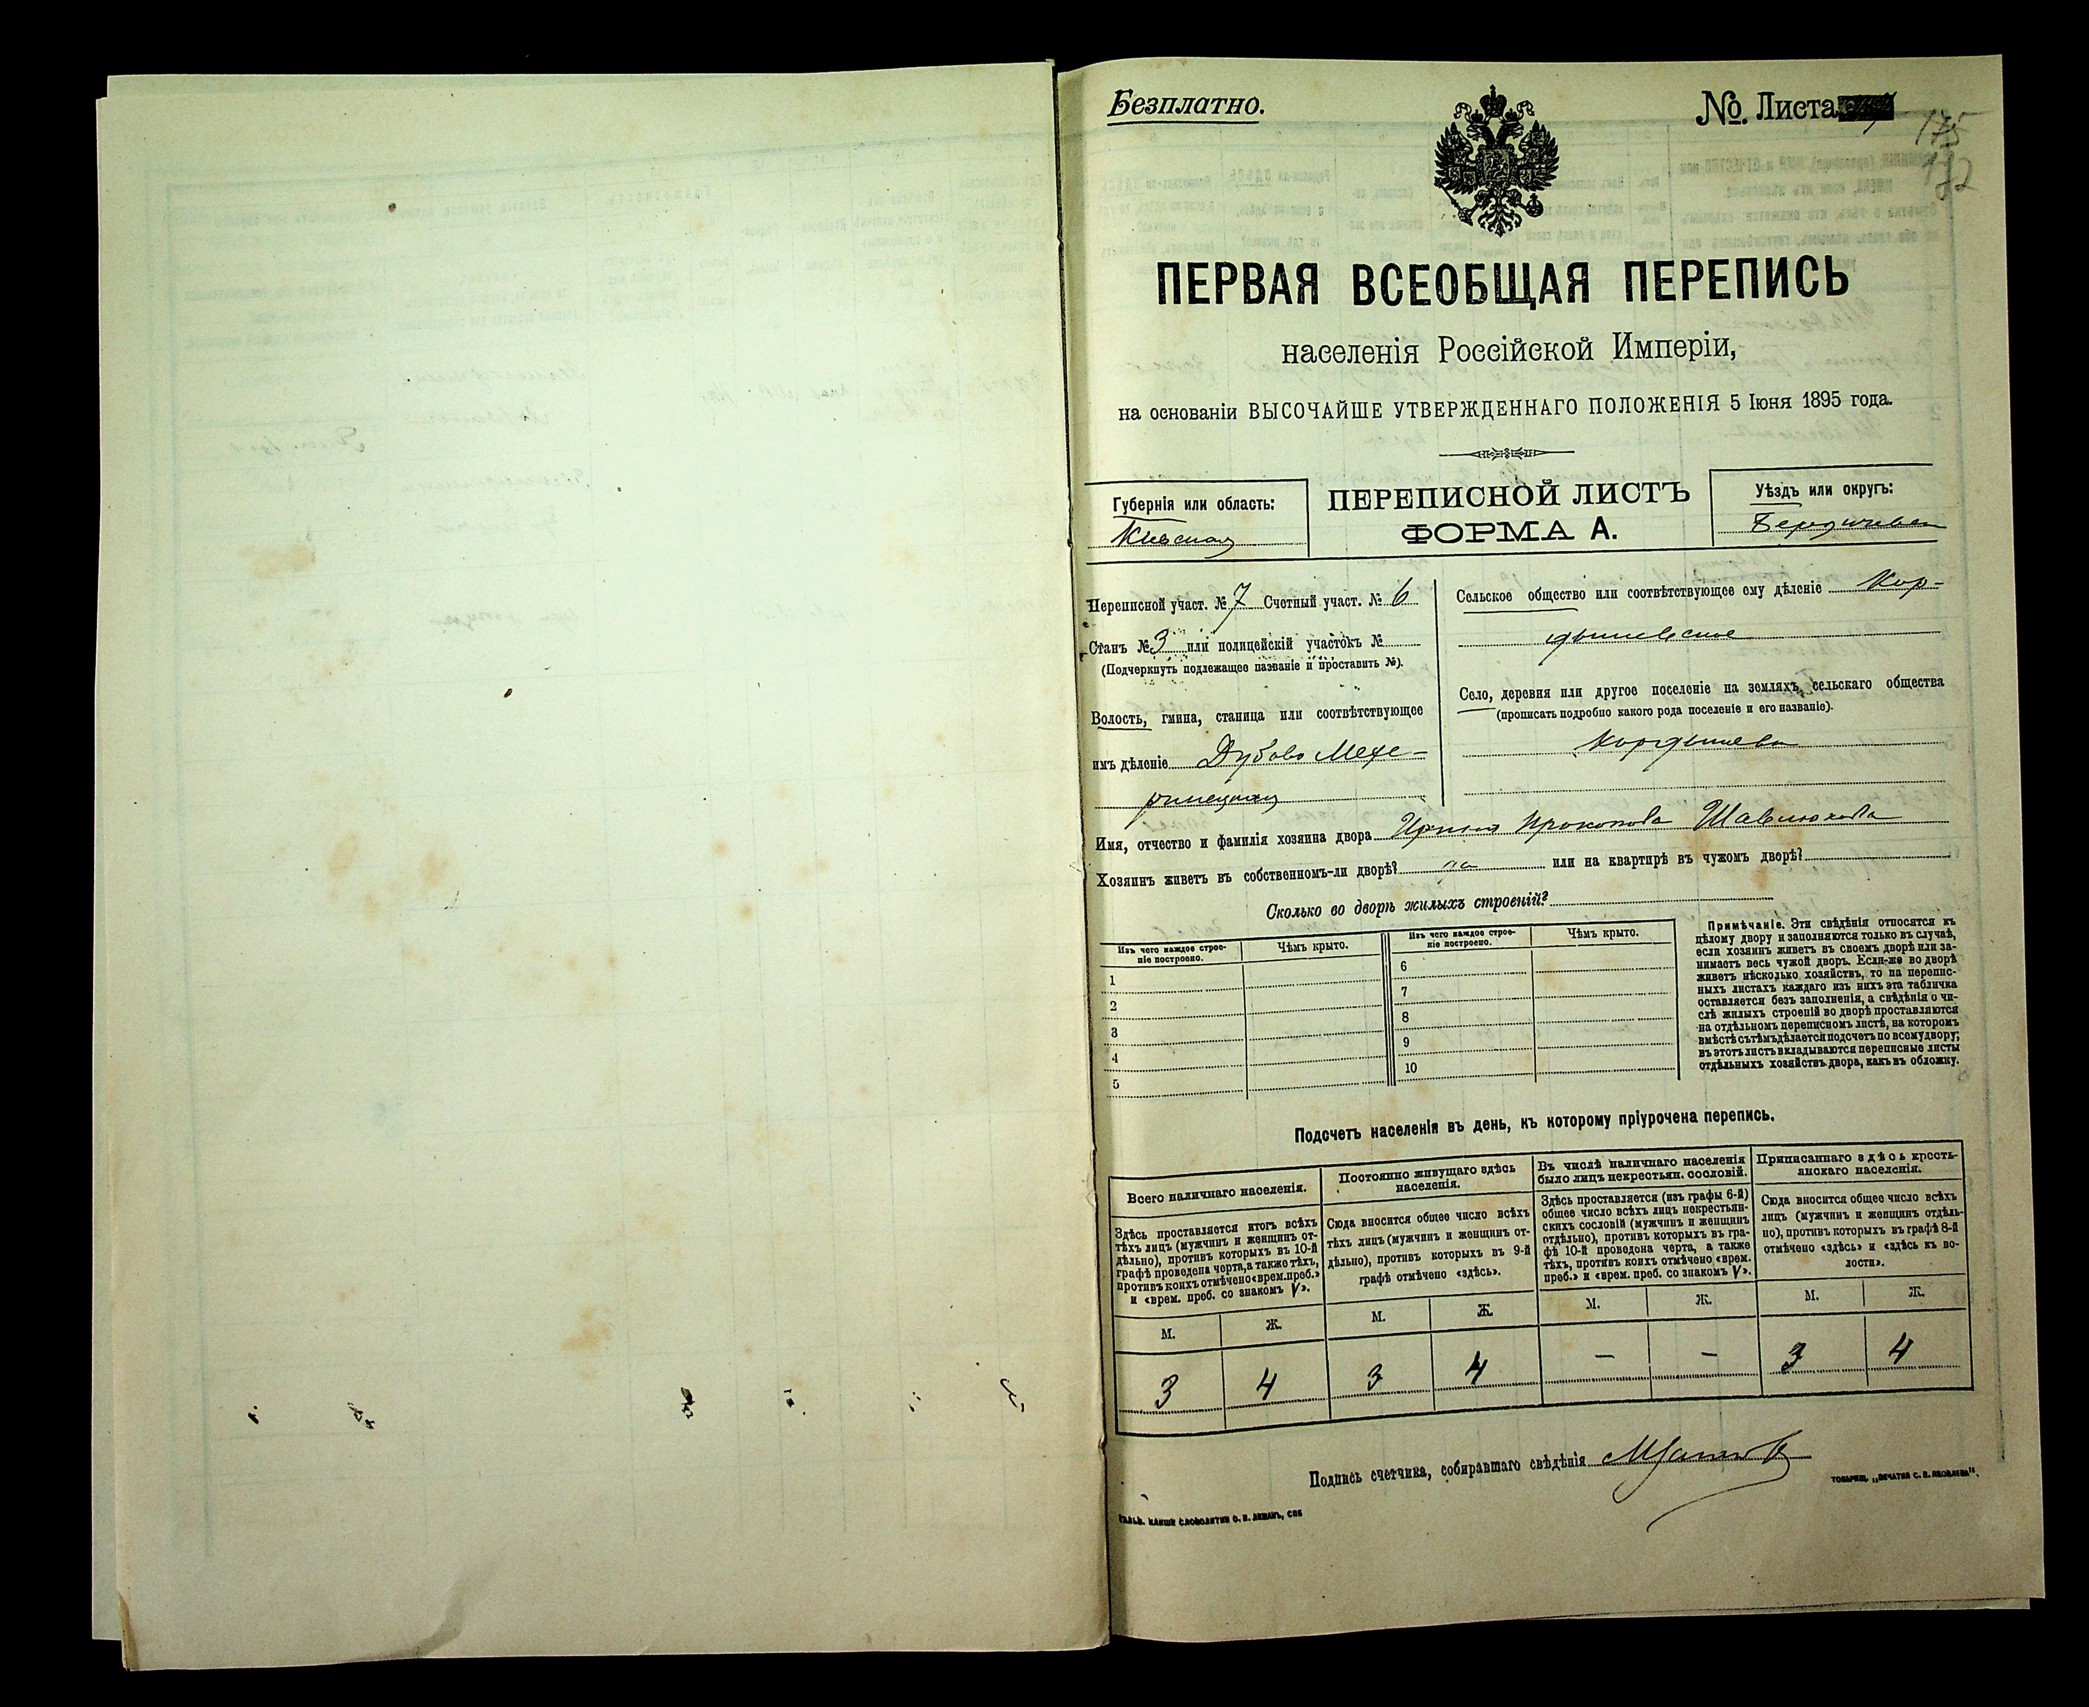 Безплатно.
№. Листа
175
ПЕРВАЯ ВСЕОБЩАЯ ПЕРЕПИСЬ
населенія Россійской Имперіи,
на основаніи ВЫСОЧАЙШЕ УТВЕРЖДЕННАГО ПОЛОЖЕНІЯ 5 Іюня 1895 года.
Губернія или область:
Кіевская
ПЕРЕПИСНОЙ ЛИСТЪ
ФОРМА А.
Уѣздъ или округъ:
Бердичевск
Переписной участ. № 7 Счетный участ. № 6
Станъ № 3 или полицейскій участокъ №
(Подчеркнуть подлежащее названіе и проставить №).
Волость, гмина, станица или соотвѣтствующее
имъ дѣленіе Дубово Меже-
ринецкая
Сельское общество или соотвѣтствующее ему дѣленіе Кор-
дышевское
Село, деревня или другое поселеніе на земляхъ сельскаго общества
(прописать подробно какого рода поселеніе и его названіе).
Кордышевка
Имя, отчество и фамилія хозяина двора Ирина Прокопова Шавлюкова
Хозяинъ живетъ въ собственномъ-ли дворѣ? да или на квартирѣ въ чужомъ дворѣ?
Сколько во дворѣ жилыхъ строеній?
Изъ чего каждое строе-
ніе построено.
Чѣмъ крыто.
Изъ чего каждое строе-
ніе построено.
Чѣмъ крыто.
1
2
3
4
5
6
7
8
9
10
Примѣчаніе. Эти свѣдѣнія относятся къ
цѣлому двору и заполняются только въ случаѣ,
если хозяинъ живетъ въ своемъ дворѣ или за-
нимаетъ весь чужой дворъ. Если-же во дворѣ
живетъ нѣсколько хозяйствъ, то на перепис-
ныхъ листахъ каждаго изъ нихъ эта табличка
оставляется безъ заполненія, а свѣдѣнія о чи-
слѣ жилыхъ строеній во дворѣ проставляются
на отдѣльномъ переписномъ листѣ, на которомъ
вмѣстѣ съ тѣмъ дѣлается подсчетъ по всему двору;
въ этотъ листъ вкладываются переписные листы
отдѣльныхъ хозяйствъ двора, какъ въ обложку.
Подсчетъ населенія въ день, къ которому пріурочена перепись.
Всего наличнаго населенія.
Постоянно живущаго здѣсь
населенія.
Въ числѣ наличнаго населенія
было лицъ некрестьян. сословій.
Приписаннаго здѣсь кресть-
янскаго населенія.
Здѣсь проставляется итогъ всѣхъ
тѣхъ лицъ (мужчинъ и женщинъ от-
дѣльно), противъ которыхъ въ 10-й
графѣ проведена черта, а также тѣхъ,
противъ коихъ отмѣчено «врем. преб.»
и «врем. преб. со знакомъ V».
Сюда вносится общее число всѣхъ
тѣхъ лицъ (мужчинъ и женщинъ от-
дѣльно), противъ которыхъ въ 9-й
графѣ отмѣчено «здѣсь».
Здѣсь проставляется (изъ графы 6-й)
общее число всѣхъ лицъ некрестьян-
скихъ сословій (мужчинъ и женщинъ
отдѣльно), противъ которыхъ въ гра-
фѣ 10-й проведена черта, а также
тѣхъ, противъ коихъ отмѣчено «врем.
преб.» и «врем. преб. со знакомъ V».
Сюда вносится общее число всѣхъ
лицъ (мужчинъ и женщинъ отдѣль-
но), противъ которыхъ въ графѣ 8-й
отмѣчено «здѣсь» и «здѣсь къ во-
лости».
М. Ж. М. Ж. М. Ж. М. Ж.
3 4 3 4 — — 3 4
Подпись счетчика, собиравшаго свѣдѣнія
ГАЛЬВ. КЛИШЕ СЛОВОЛИТНИ О. И. ЛЕМАНЪ, СПБ
ТОВАРИЩ. „ПЕЧАТНЯ С. П. ЯКОВЛЕВА".